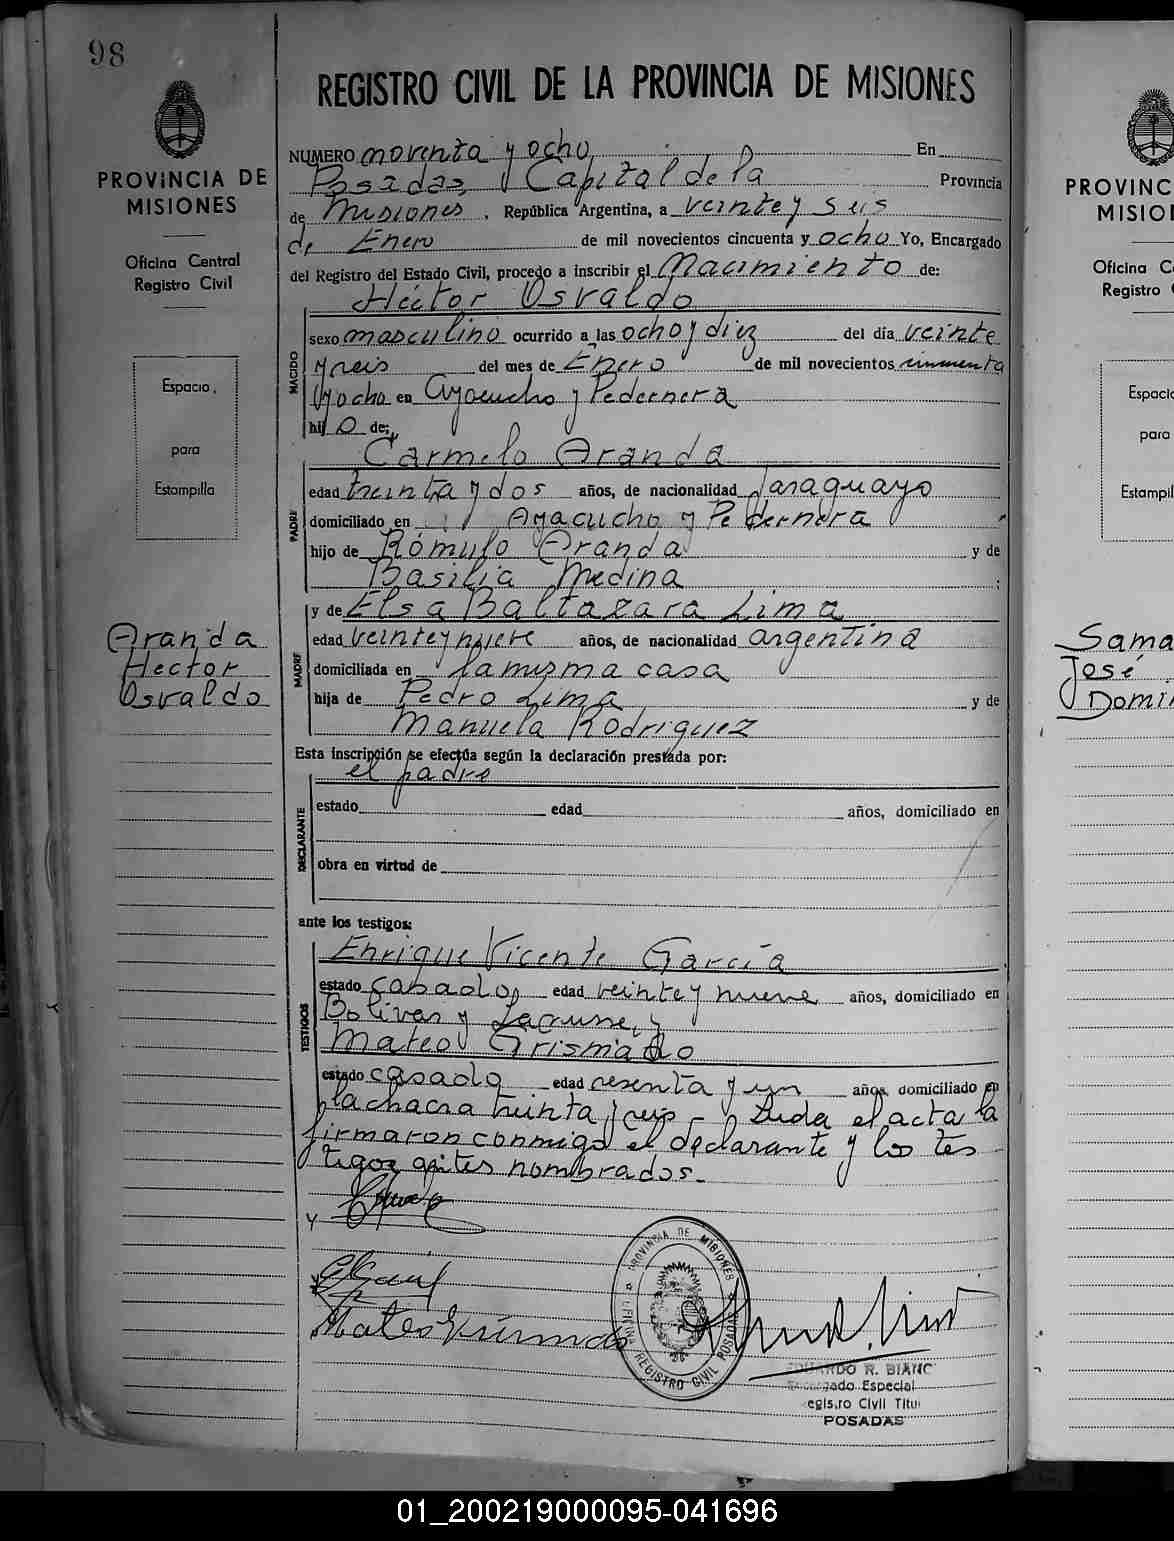 98
PROVINCIA DE
MISIONES
Oficina Central
Registro Civil
Espacio
para
Estampilla
Aranda
Hector
Osvaldo
REGISTRO CIVIL DE LA PROVINCIA DE MISIONES
NUMERO noventa y ocho En
Posadas, Capital de la Provincia
de Misiones, República Argentina, a veinte y seis
de Enero de mil novecientos cincuenta y ocho Yo, Encargado
del Registro del Estado Civil, procedo a inscribir el Nacimiento de:
Héctor Osvaldo
NACIDO
sexo masculino ocurrido a las ocho y diez del día veinte
y seis del mes de Enero de mil novecientos cincuenta
y ocho en Ayacucho y Pedernera
hijo de:
Carmelo Aranda
PADRE
edad treinta y dos años, de nacionalidad paraguayo
domiciliado en Ayacucho y Pedernera
hijo de Rómulo Aranda y de
Basilia Medina
y de Elsa Baltazara Lima
MADRE
edad veinte y nueve años, de nacionalidad argentina
domiciliada en la misma casa
hija de Pedro Lima y de
Manuela Rodriguez
Esta inscripción se efectúa según la declaración prestada por:
el padre
DECLARANTE
estado edad años, domiciliado en
obra en virtud de
ante los testigos:
Enrique Vicente García
TESTIGOS
estado casado, edad veinte y nueve años, domiciliado en
Bolivar y
Mateo Grismado
estado casado edad sesenta y un años, domiciliado en
la chacra treinta y seis - Leida el acta la
firmaron conmigo el declarante y los tes
tigos antes nombrados.
Mateo Grismado
PROVINCIA DE MISIONES
OFICINA REGISTRO CIVIL POSADAS
EDUARDO R. BIANC
Encargado Especial
egistro Civil Titul
POSADAS
PROVINC
MISIO
Oficina C
Registro
Espacio
para
Estampil
Sama
José
Domin
01_200219000095-041696